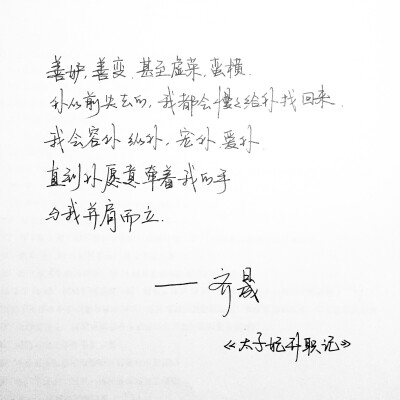 善妒,善变.甚至虚荣,蛮横.
你从前失去的,我都会慢々给你找回来.
我会容你 纵你,宠你 爱你.
直到你愿意牵着我的手
与我并肩而立.
—— 齐晟
《太子妃升职记》